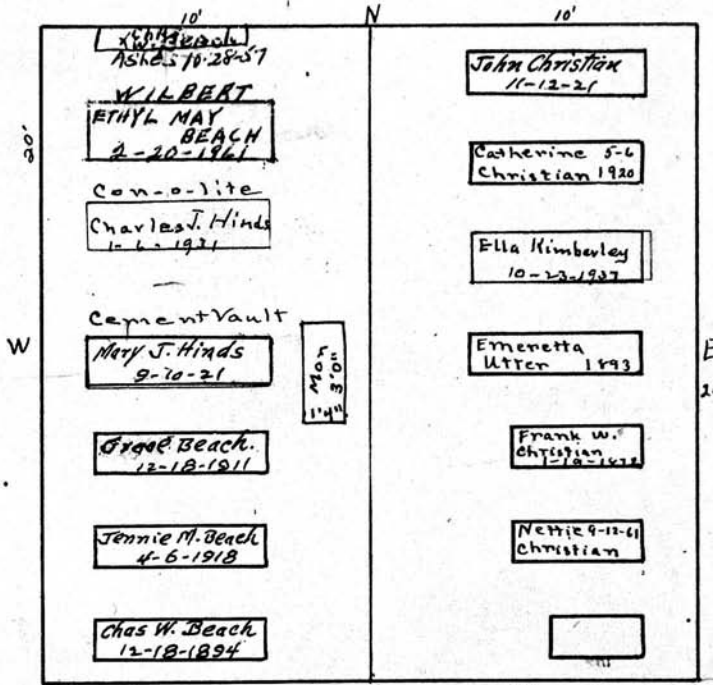 10' N 10'
W. Beach
Ashes 10-28-57
WILBERT
ETHYL MAY
BEACH
2-20-1961
Con-o-lite
Charles J. Hinds
1-6-1931
Cement Vault
Mary J. Hinds
9-10-21
Beach.
12-18-1911
Jennie M. Beach
4-6-1918
Chas W. Beach
12-18-1894
20'
W
Mon
1'4" 3'0"
John Christian
11-12-21
Catherine 5-6
Christian 1920
Ella Kimberley
10-23-1937
Emeretta
Utter 1893
Frank W.
Christian
Nettie 9-12-61
Christian
E